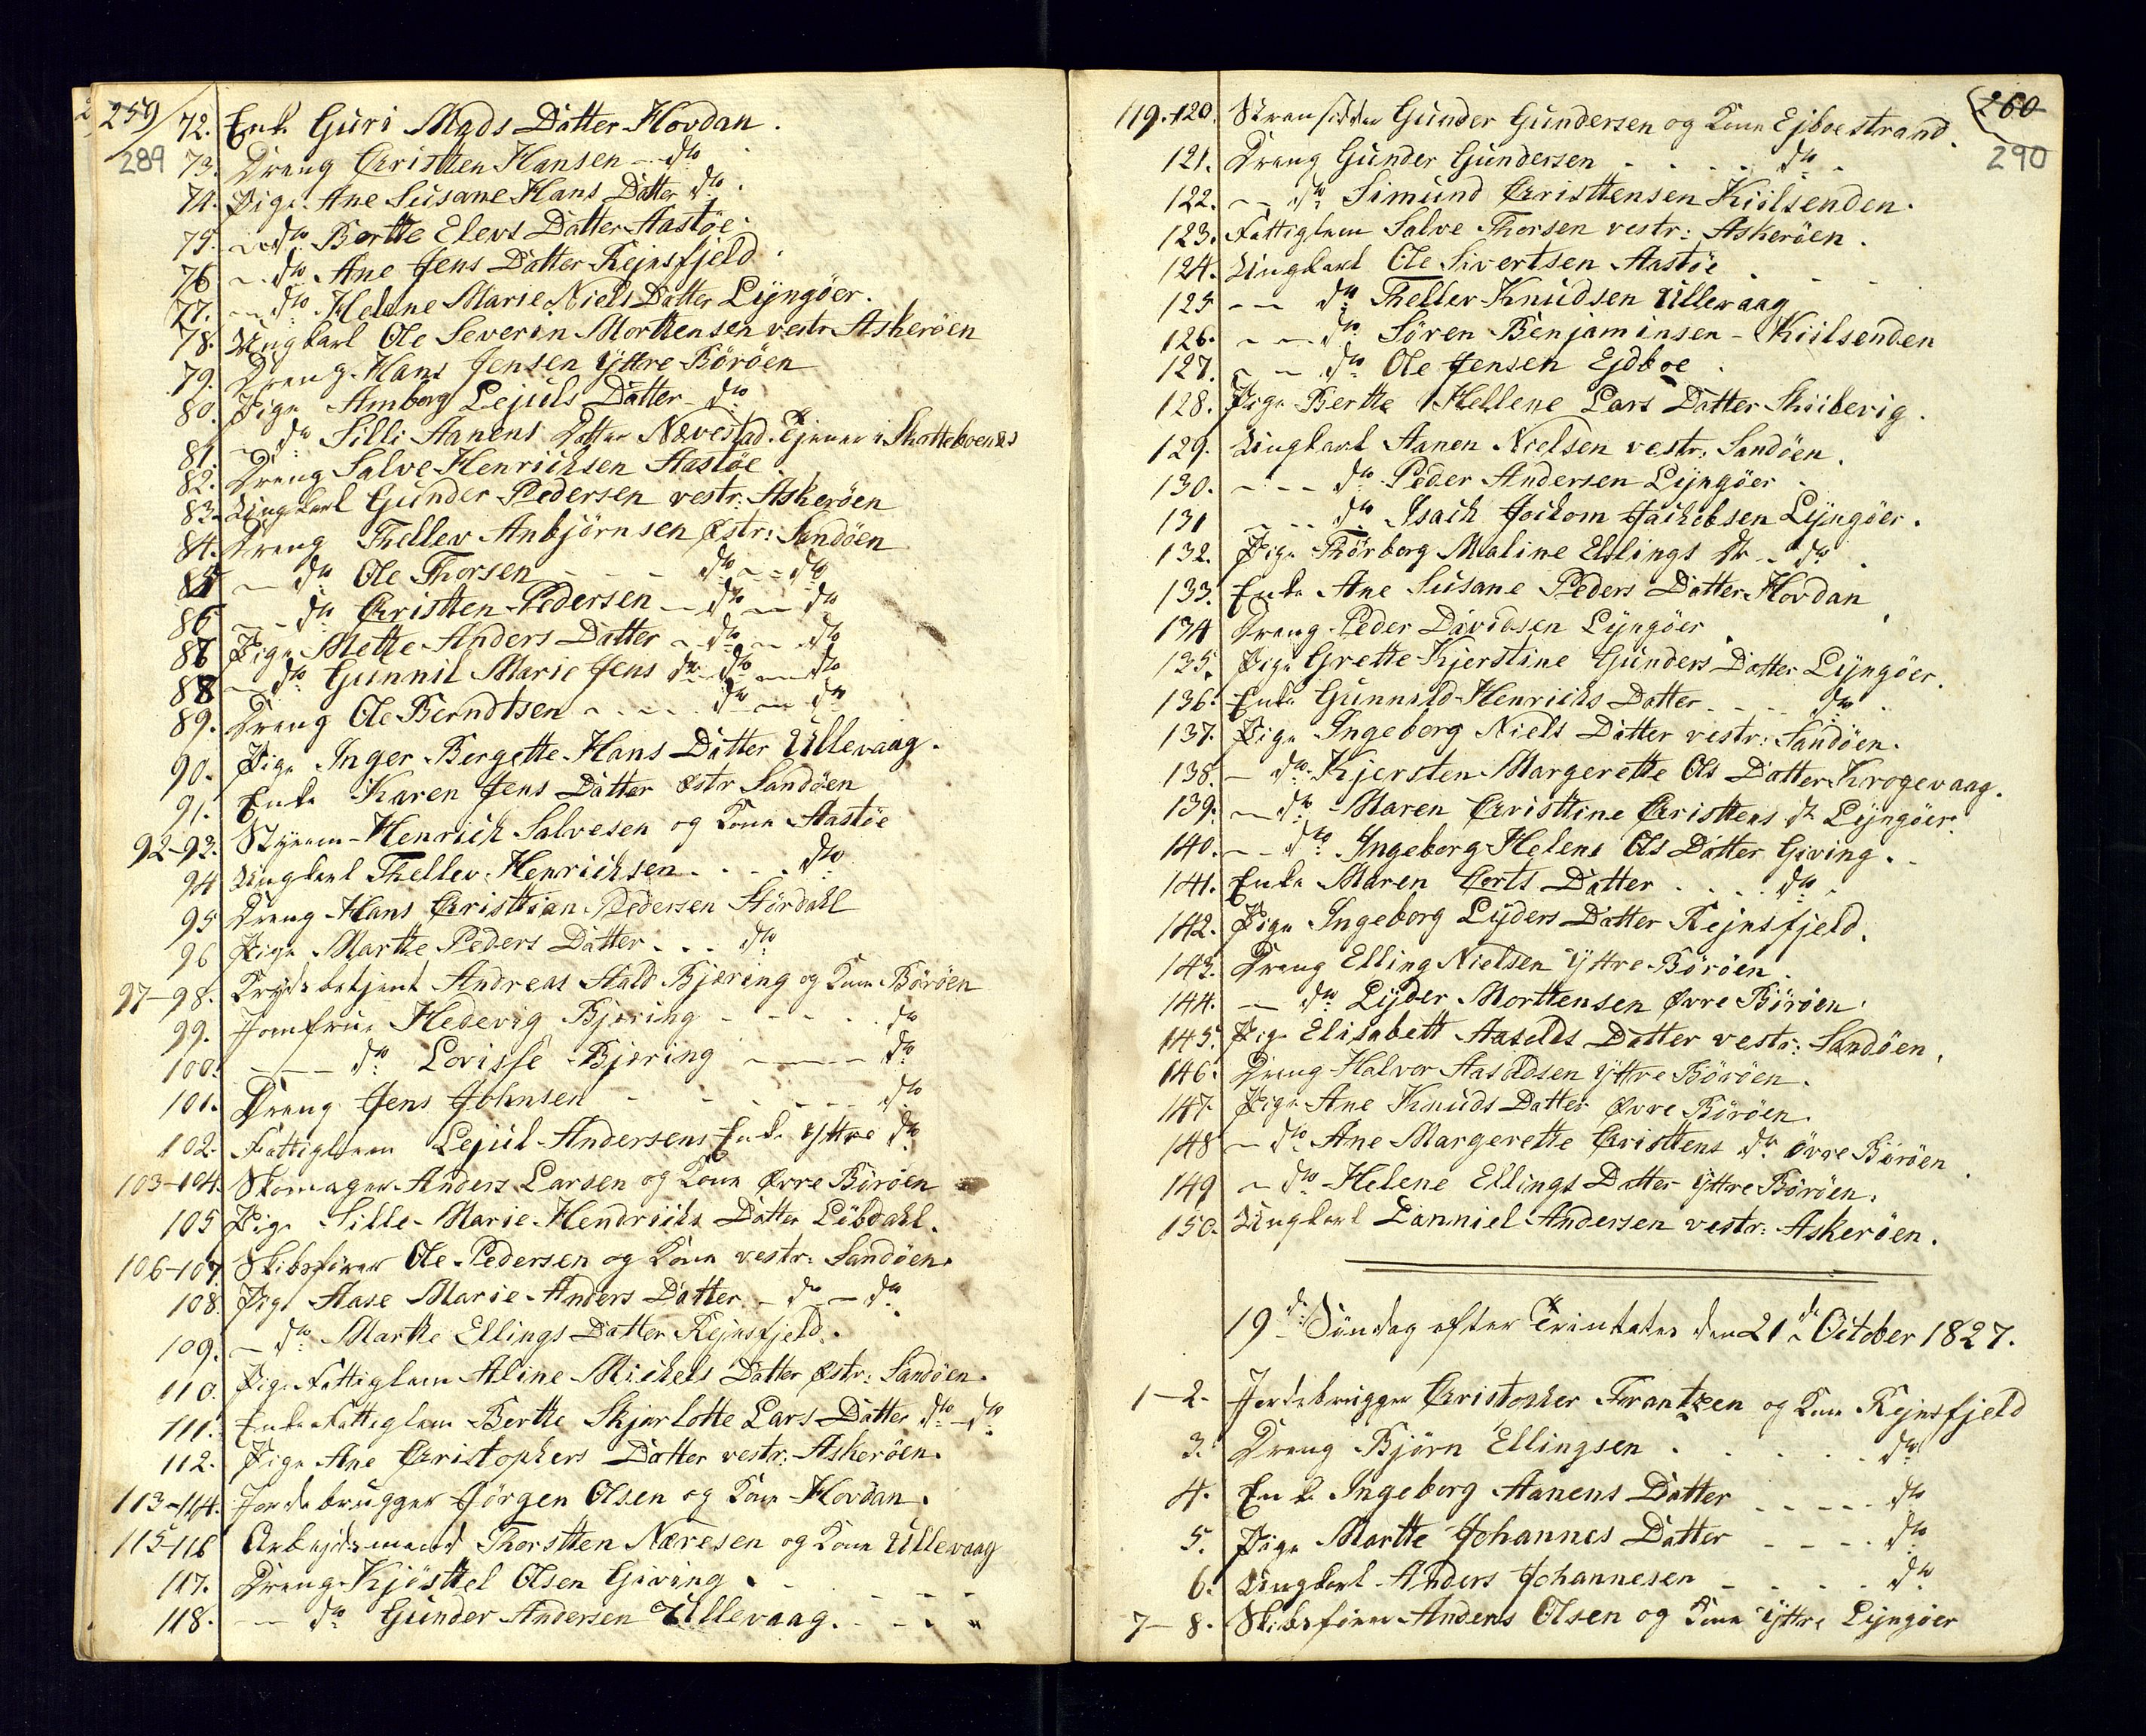 259
289
72. Enke Guri Mads Datter Hovdan.
73. Dreng Cristten Hansen - do
74. Pige Ane Susane Hans Datter do.
75. - do Bertte Elevs Datter Aastøe.
76 - do Ane Jens Datter Rejnsfjeld.
77. - do Helene Marie Niels Datter Lyngöer.
78. Ungkarl Ole Severin Morttensen vestr Askeröen
79. Dreng Hans Jensen Yttre Böröen
80. Pige Amborg Lejuls Datter - do
81. - do Silli Aanens Datter Nævestad. Tjener i
82. Dreng Salve Henrichsen Aastøe
83. Ungkarl Gunder Pedersen vestr: Askeröen
84. Dreng Thellev Anbjörnsen Østr: Sandöen
85 - do Ole Thorsen - - - do - - do
86 - - do Cristten Pedersen - do - do
87 Pige Mette Anders Datter - do - do
88 - do Gunnil Marie Jens dr do - do
89. Dreng Ole Berndtsen - - - do - do
90. Pige Inger Bergette Hans Datter Ullevaag.
91. Enke Karen Jens Datter østr Sandöen
92-93. Styrm - Henrich Salvesen og Kone Aastøe
94 Ungkarl Thellev Henrichsen . . . . do
95 Dreng Hans Cristtian Pedersen Nördahl
96 Pige Martte Peders Datter . . . do
97-98. Krydsbetjent Andreas Aald Bjering og Kone Böröen
99. Jomfrue Hedevig Bjering - - - - - do
100. - - - do Lovisse Bjering - - - - do
101. Dreng Jens Johnsen - - - - - - do
102. Fattiglem Lejul Andersens Enke Yttre do
103-104. Skomager Anders Larsen og Kone Øvre Böröen
105 Pige Sille Marie Hendrichs Datter Löbdahl.
106-107 Skibsfører Ole Pedersen og Kone vestr: Sandöen.
108. Pige Aase Marie Anders Datter - do - do
109. - do Marthe Ellings Datter Rejnsfjeld.
110. Pige Fattiglem Aline Michels Datter Østr: Sandöen.
111. Enke Fattiglem Berthe Skjarlotte Lars Datter do - do
112. Pige Ane Cristophers Datter vestr: Askeröen.
113-114. Jordebrugger Jörgen Olsen og Kone Hovdan.
115-116 Arbejdsmand Thorstten Næresen og Kone Ullevaag
117. Dreng Kjösttel Olsen Giving . - - - -
118. - - do Gunder Andersen Ullevaag. - - -
260
290
119-120. Strandsidder Gunder Gundersen og Kone Ejboestrand.
121. Dreng Gunder Gundersen . . . . do.
122. - - do Simund Cristtensen Kiilsenden.
123. Fattiglem Salve Thorsen vestr: Askeröen.
124. Ungkarl Ole Sivertsen Aastøe . - -
125 - - do Thellev Knudsen Ullevaag
126. - - do Sören Benjaminsen - Kiilsenden
127. - - do Ole Jensen Ejdboe .
128. Pige Berthe Hellene Lars Datter Skiibevig.
129. Ungkarl Aanen Nielsen vestr: Sandöen.
130. - - - do Peder Andersen Lyngöer .
131 - - - do Isach Jochom Jachobsen Lyngöer.
132. Pige Thörborg Maline Ellings Dr - do .
133. Enke Ane Susane Peders Datter Hovdan
134 Dreng Peder Davidsen Lyngöer .
135. Pige Grette Kjerstine Gunders Datter Lyngöer.
136. Enke Gunnild Henrichs Datter - - - do .
137. Pige Ingeborg Niels Datter vestr: Sandöen.
138. - do Kjersten Margerette Ols Datter Krogevaag.
139. - do Maren Cristtine Cristtens dr Lyngöer.
140. - - do Ingeborg Helene Ols Datter Giving. -
141. Enke Maren Corts Datter . . . . do .
142. Pige Ingeborg Lyders Datter Rejnsfjeld.
143. Dreng Elling Nielsen Yttre Böröen .
144. - do Lyder Morttensen Øvre Böröen.
145. Pige Elisabett Aasolds Datter vestr: Sandöen.
146. Dreng Halvor Aasoldsen Yttre Böröen.
147. Pige Ane Knuds Datter Øvre Böröen.
148 - do Ane Margerette Cristtens dr Övre Böröen
149 - do Helene Ellings Datter Yttre Böröen.
150. Ungkarl Danniel Andersen vestr: Askeröen.
19de Söndag efter Trinitates den 21de October 1827.
1-2. Jordebrugger Cristopher Frantzen og Kone Rejnsfjeld
3. Dreng Björn Ellingsen . . . . . do
4. Enke Ingeborg Aanens Datter - - - - - do
5. Pige Martte Johannes Datter - - - - do
6. Ungkarl Anders Johannesen - - - - do
7-8. Skibsfører Anders Olsen og Kone Yttre Lyngöer